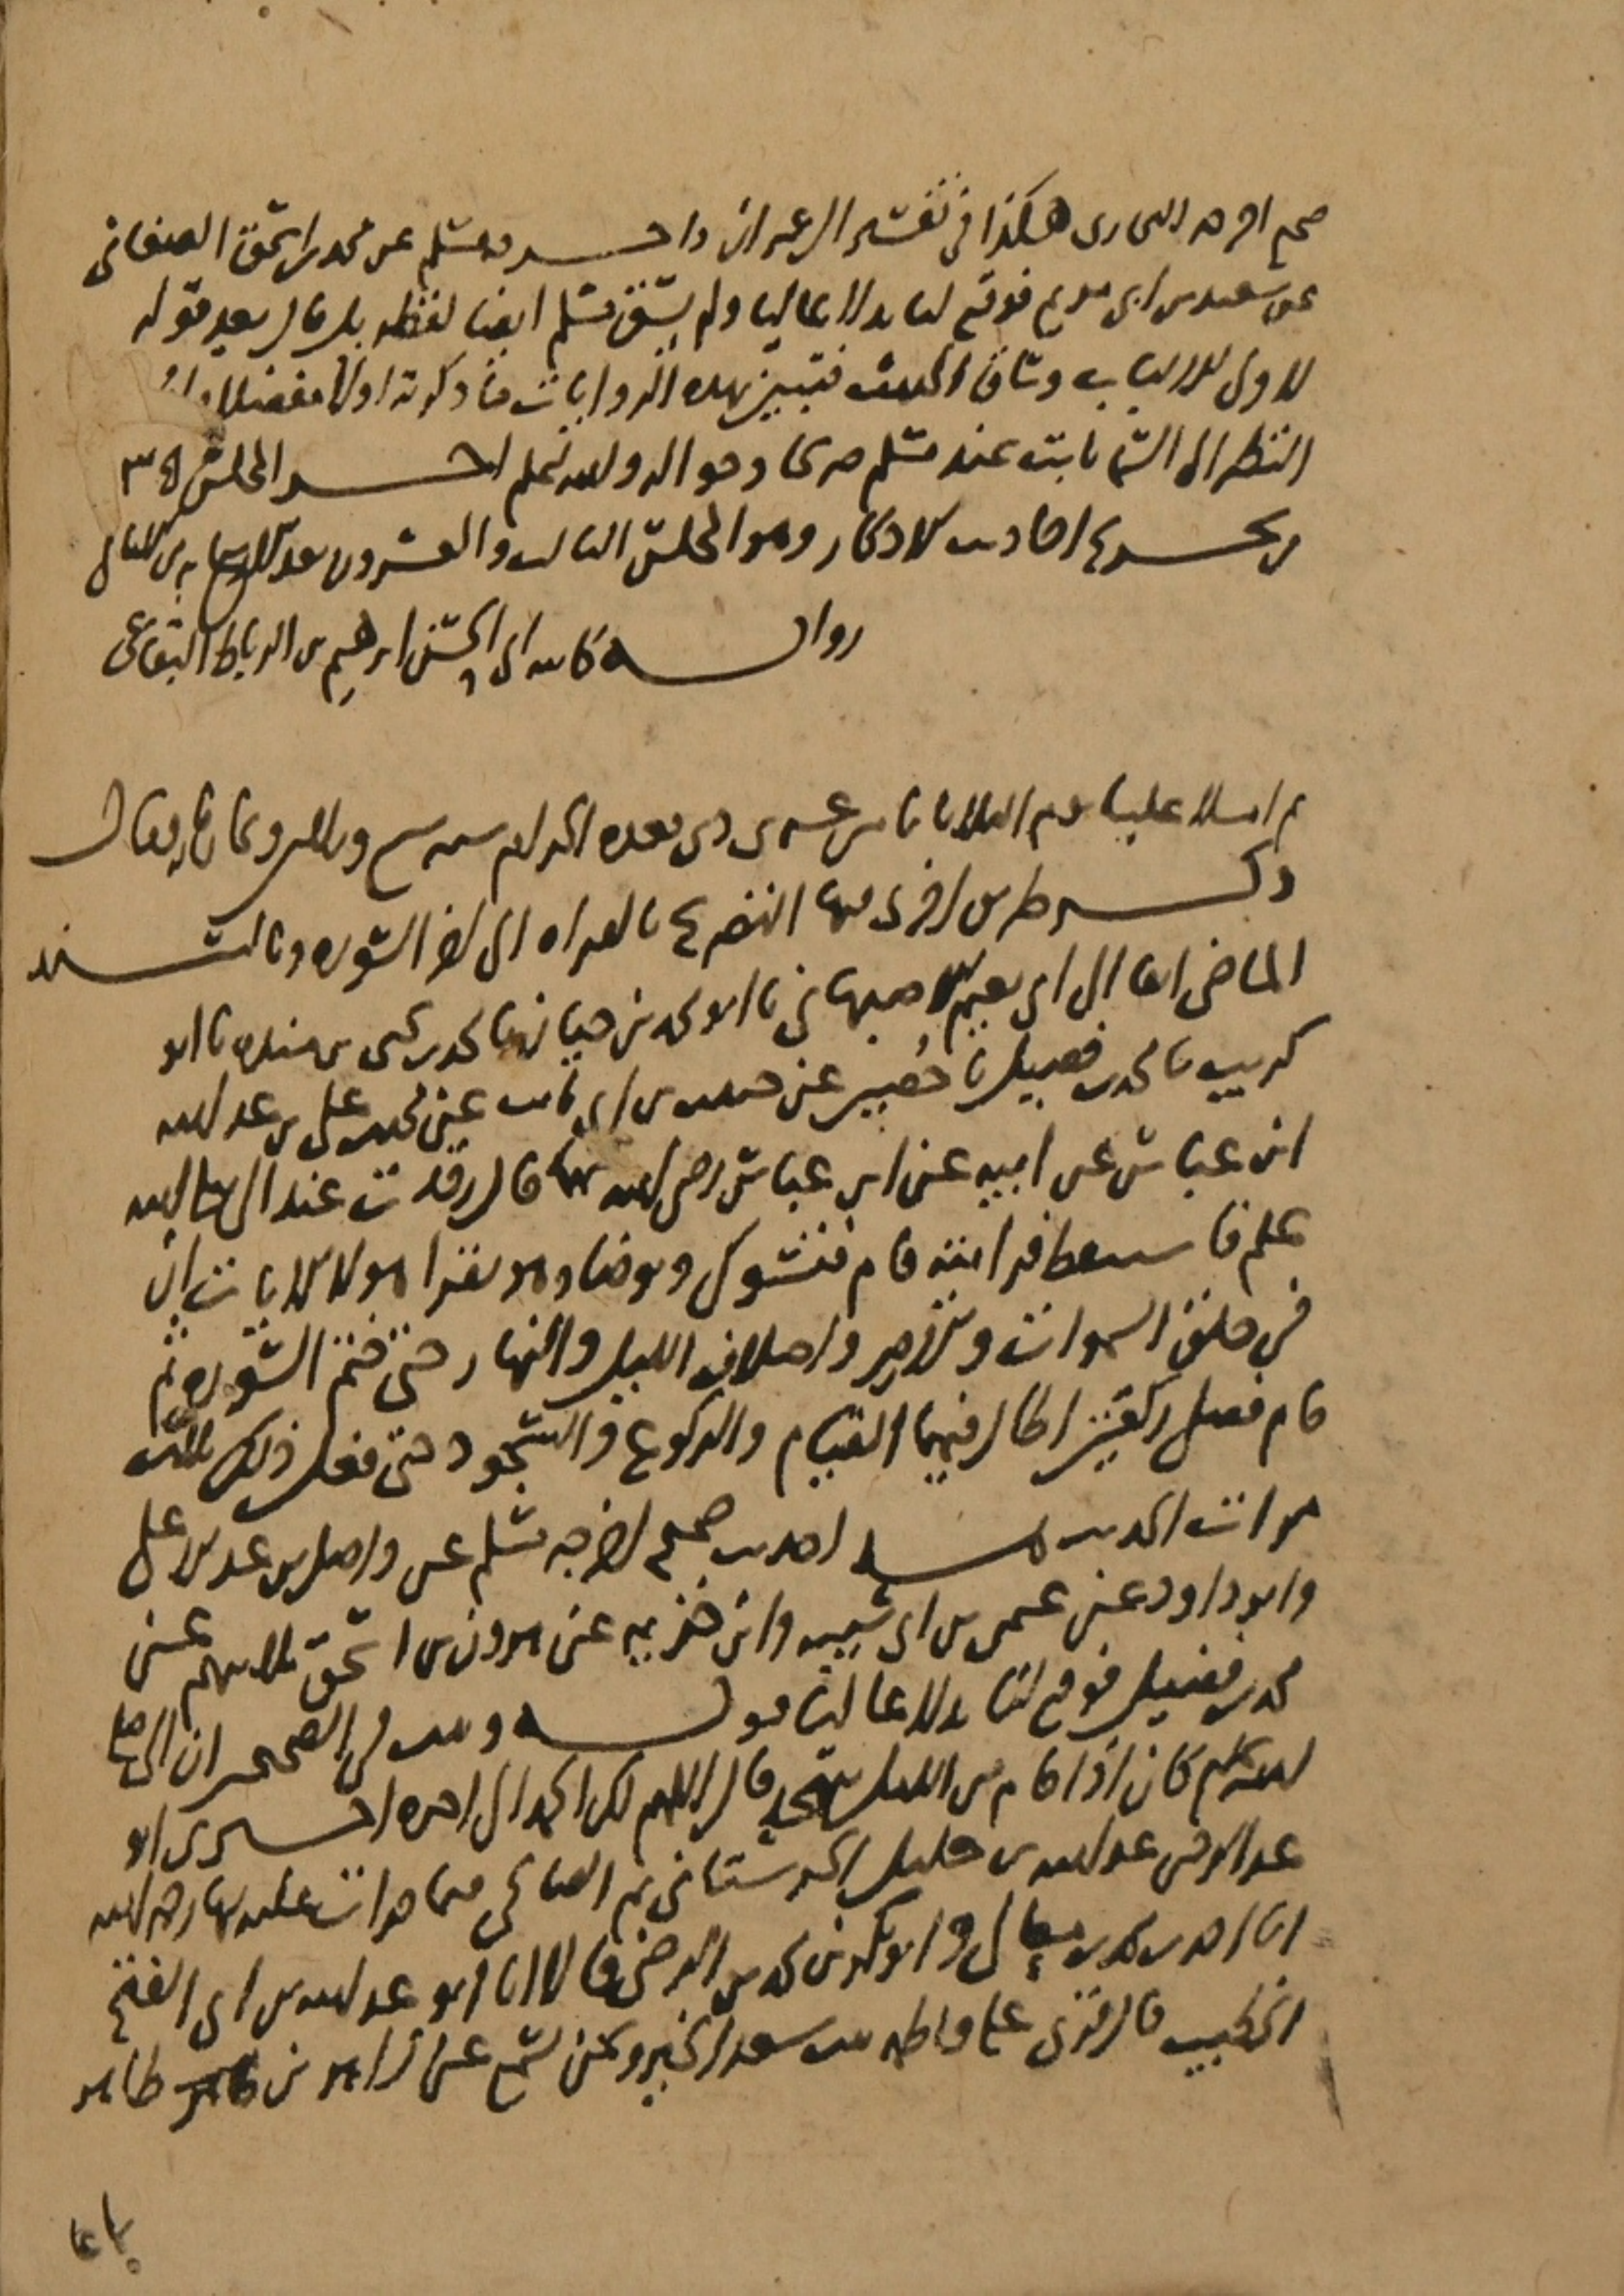 صحيح اخرجه البخاري هكذا في تفسير ال عمران واخرجه مسلم عن محمد بن اسحق الصغاني
عن سعيد بن ابي مريم فوقع لنا بدلا عاليا ولم يسق مسلم ايضا لفظه بل قال بعد قوله
لاولي الالباب وساق الحديث فتبين بهذه الروايات ما ذكرته اولا مفصلا وان
النظر الى السما ثابت عند مسلم صريحا وحوالة والله اعلم اخر المجلس ٣٨
من تخريج احاديث الاذكار وهو المجلس الثالث والعشرون بعد الاربعمايه من الامالي
رواية كاتبه ابي الحسن ابرهيم بن الرباط البقاعي
ثم املا علينا يوم الثلاثا ثامن عشري ذي قعده الحرام سنه سبع وثلاثين وثمان مايه فقال
ذكر طرق اخرى فيها التصريح بالقراه الى اخر السوره وبالسند
الماضي انفا الى ابي نعيم الاصبهاني نا ابو محمد بن حيان نا محمد بن يحيى بن منده نا ابو
كريب نا محمد بن فضيل نا حصين عن حبيب بن ابي ثابت عن محمد بن علي بن عبد الله
ابن عباس عن ابيه عن ابن عباس رضي الله عنهما قال رقدت عند النبي صلى الله
عليه وسلم فاستيقظ فرايته قام فتسوك وتوضا وهو يقرا هولا الايات ان
في خلق السموات والارض واختلاف الليل والنهار حتى ختم السوره ثم
قام فصلى ركعتين اطال فيهما القيام والركوع والسجود حتى فعل ذلك ثلاث
مرات الحديث هذا حديث صحيح اخرجه مسلم عن واصل بن عبد الاعلى
وابو داود عن عثمن بن ابي شيبه وابن خزيمه عن هرون بن اسحق ثلاثتهم عن
محمد بن فضيل فوقع لنا بدلا عاليا قوله وثبت في الصحيحين ان النبي صلى
الله عليه وسلم كان اذا قام من الليل يتهجد قال اللهم لك الحمد الى اخره اخبرني ابو
عبد الرحمن عبد الله بن خليل الحرستاني ثم الصالحي فيما قرات عليه بها رحمه الله
انا احمد بن محمد بن معالي وابو بكر بن محمد بن الرضي قالا انا ابو عبد الله بن ابي الفتح
الخطيب قال قرئ على فاطمه بنت سعد الخير ونحن نسمع عن زاهر بن طاهر